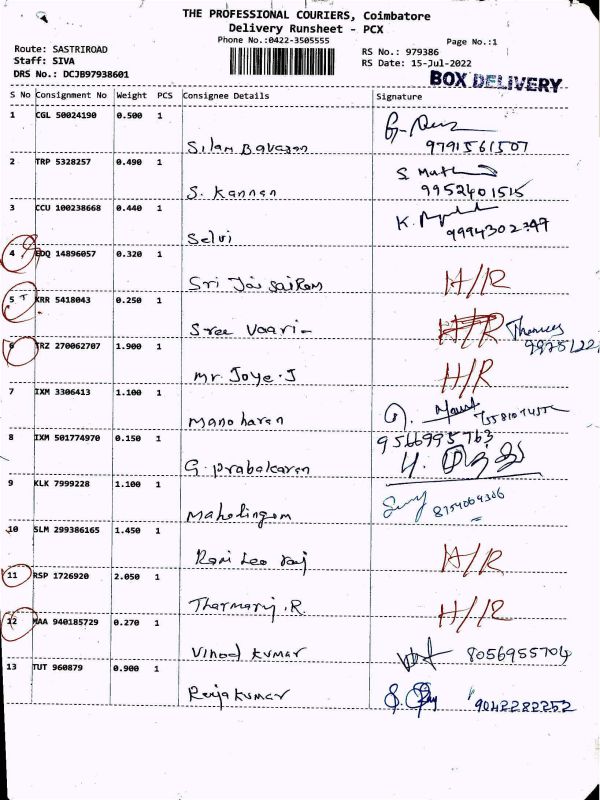 THE PROFESSIONAL COURIERS, Coimbatore
Delivery Runsheet - PCX
Phone No.:0422-3505555
Page No.:1
Route: SASTRIROAD
Staff: SIVA
DRS No.: DCJB97938601
RS No.: 979386
RS Date: 15-Jul-2022
BOX DELIVERY
S No Consignment No Weight PCS Consignee Details Signature
1 CGL 50024190 0.500 1
9791561507
2 TRP 5328257 0.490 1
S. Kannan 9952401515
3 CCU 100238668 0.440 1
Selvi 9994302347
4 EDQ 14896057 0.320 1
Sri Jai Sai Ram H/R
5 KRR 5418043 0.250 1
Sree Vaari H/R
6 TRZ 270062707 1.900 1
Mr. Joye. J H/R
7 IXM 3306413 1.100 1
Manoharan
8 IXM 501774970 0.150 1 9566995763
G. Prabakaran
9 KLK 7999228 1.100 1
Mahalingam
10 SLM 299386165 1.450 1
H/R
11 RSP 1726920 2.050 1
Tharmaraj. R H/R
12 MAA 940185729 0.270 1
Vinod Kumar 8056955704
13 TUT 960879 0.900 1
Raja Kumar 9042282252